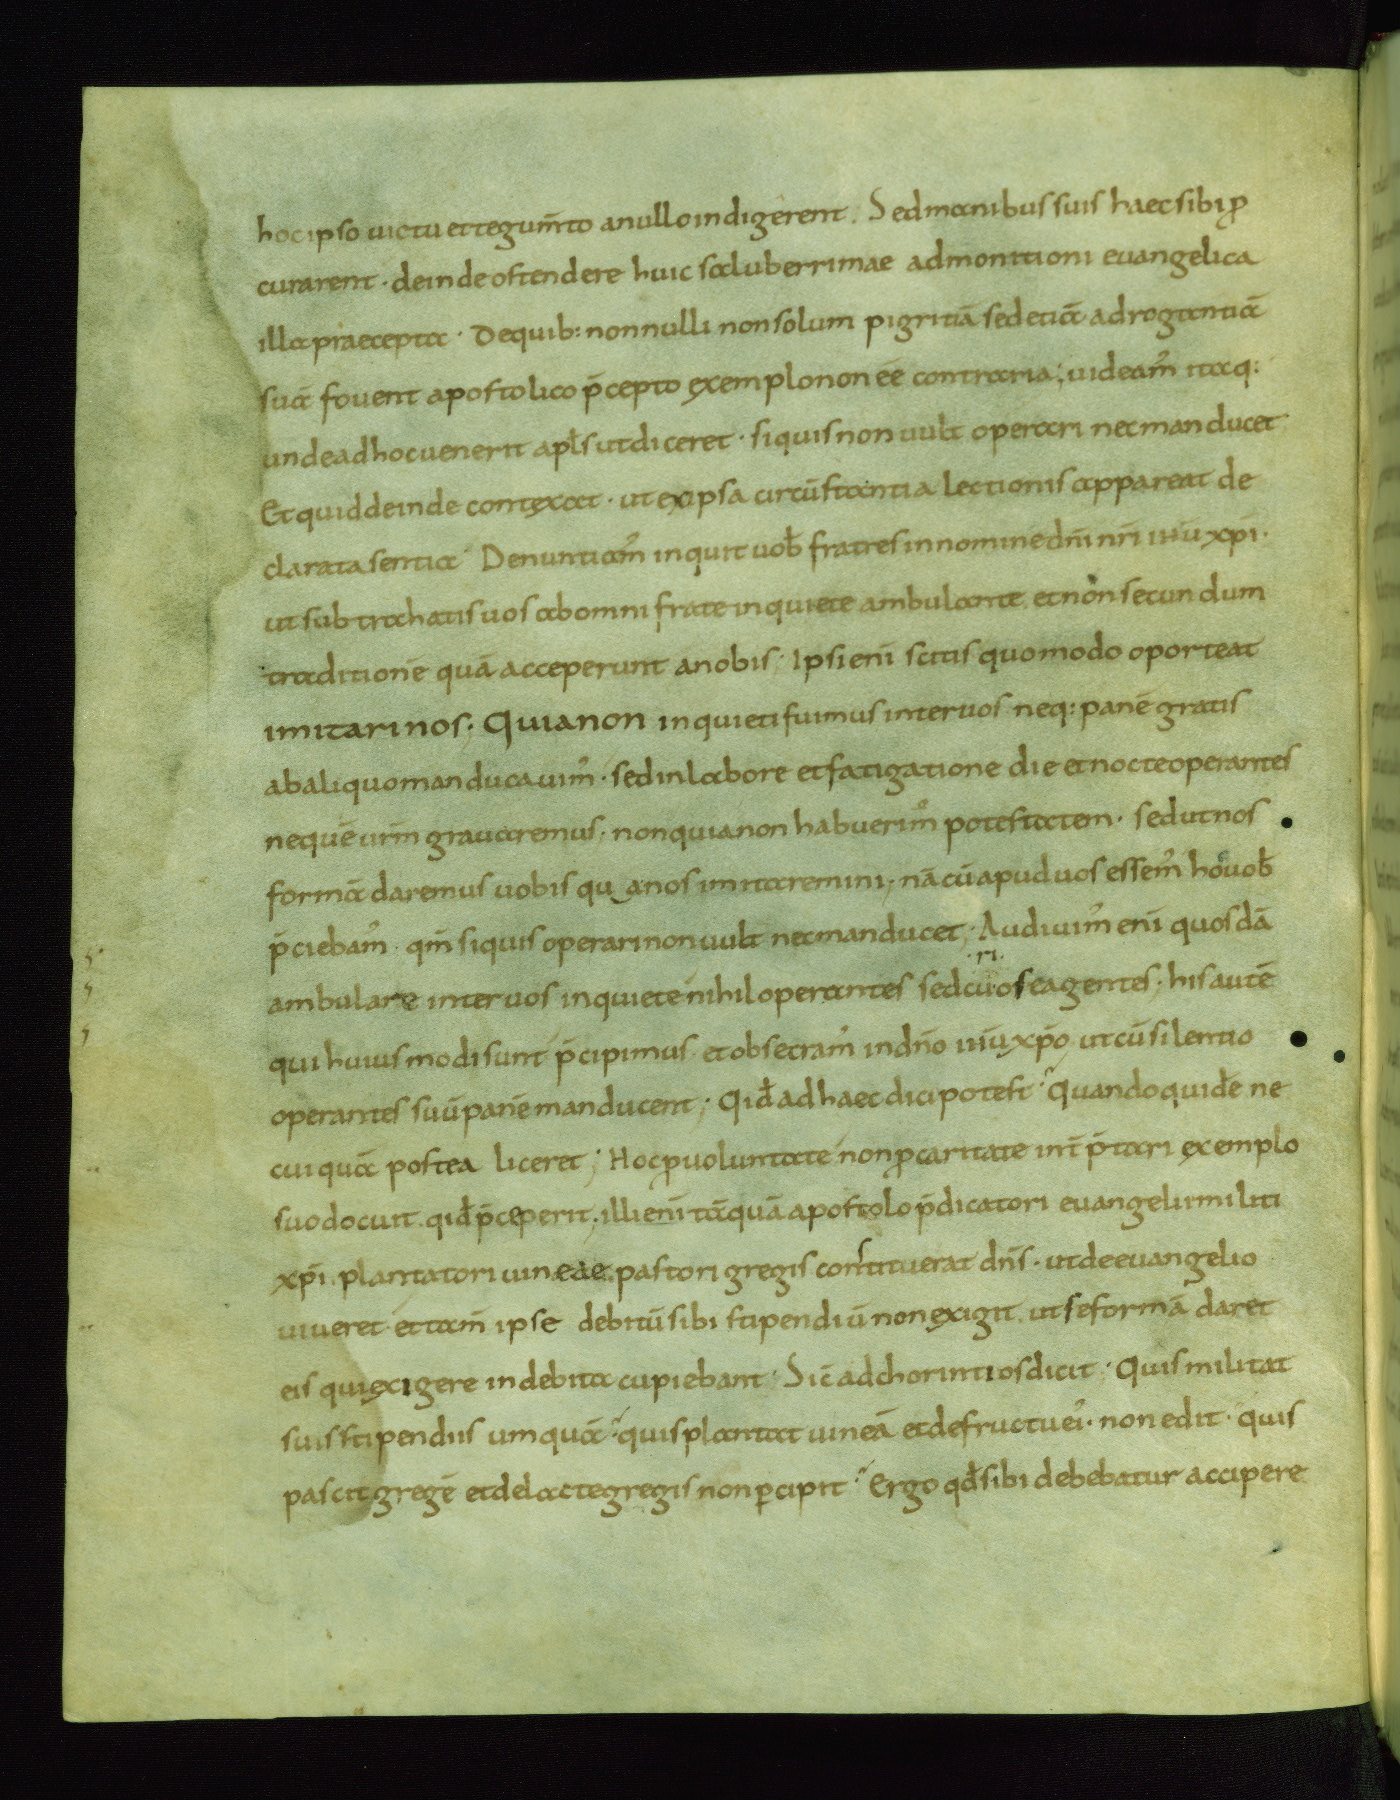 hoc ipso uictu et tegum̄to a nullo indigerent. Sed manibus suis haec sibi ꝓ
curarent · deinde ostendere huic saluberrimae admonitioni euangelica
illa praecepta · De quib: nonnulli non solum pigritiā sed etiā adrogantiā
suā fouent apostolico p̄cepto exemplo non eē contraria; uideam̉ itaq:
unde ad hoc uenerit apl̄s ut diceret · si quis non uult operari nec manducet
Et quid deinde contexat · ut ex ipsa circūstantia lectionis appareat de
clarata sentia · Denuntiam̉ inquit uob̄ fratres in nomine dn̄i nr̄i ihū xp̄i ·
ut subtrahatis uos ab omni frate inquiete ambulante et non secundum
traditionē quā acceperunt a nobis; Ipsi enī scitis quomodo oporteat
imitari nos; Quia non inquieti fuimus inter uos neq: panē gratis
ab aliquo manducauim̉ · sed in labore et fatigatione die et nocte operantes
ne quē urm̄ grauaremus; non quia non habuerim̉ potestatem · sed ut nos
formā daremus uobis qu a nos imitaremini; nā cū apud uos essem̉ hoc uob̄
p̄ciebam̉ · qm̄ si quis operari non uult nec manducet; Audiuim̉ enī quosdā
ambulare inter uos inquiete nihil operantes sed cu ri ose agentes; his autē
qui huiusmodi sunt p̄cipimus et obsecram̉ in dn̄o ihū xp̄o ut cū silentio
operantes suū panē manducent; Qid̄ ad haec dici potest? Quandoquidē ne
cui quā postea liceret; Hoc ꝓ uoluntate non ꝓ caritate int̄ p̄tari exemplo
suo docuit qid̄ p̄ceperit; illi enī tāquā apostolo p̄dicatori euangelii militi
xp̄i plantatori uineae pastori gregis constituerat dn̄s · ut de euangelio
uiueret et tam̄ ipse debitū sibi stipendiū non exigit ut se formā daret
eis qui exigere indebita cupiebant · Sic̄ ad chorintios dicit · Quis militat
suis stipendiis umquā? quis plantat uineā et de fructu eỉ · non edit · quis
pascit gregē et de lacte gregis non ꝑcipit? Ergo qd̄ sibi debebatur accipere